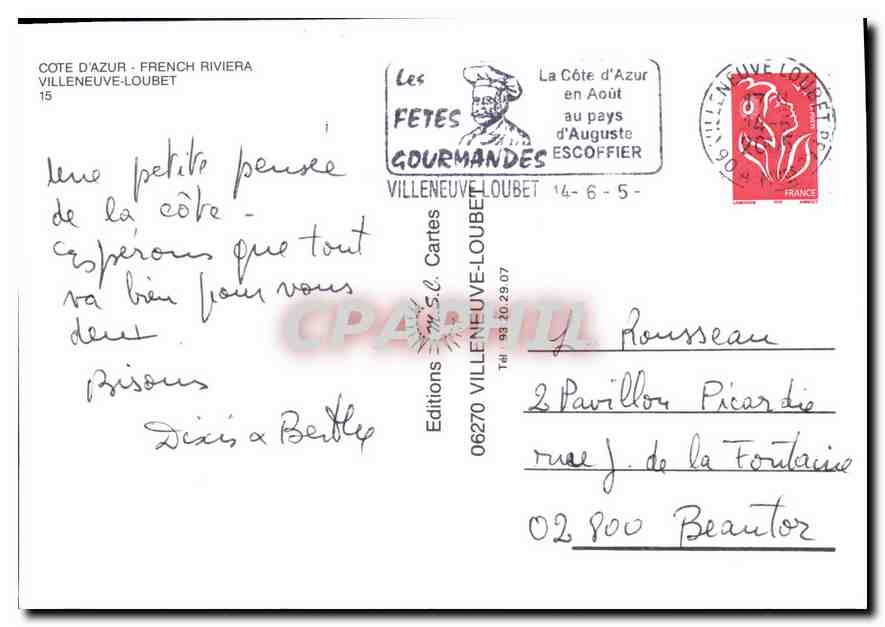 COTE D'AZUR - FRENCH RIVIERA
VILLENEUVE-LOUBET
15
Les
FETES
GOURMANDES
La Côte d'Azur
en Août
au pays
d'Auguste
ESCOFFIER
VILLENEUVE-LOUBET 14- 6- 5-
06 VILLENEUVE LOUBET
FRANCE
Une petite pensée
de la côte -
Espérons que tout
va bien pour vous
deux
Bisous
& Berthe
Editions M.S.C. Cartes
06270 VILLENEUVE-LOUBET
Tél : 93.20.29.07
CPAPHIL
L Rousseau
2 Pavillon Picardie
rue J. de la Fontaine
02 800 Beautor